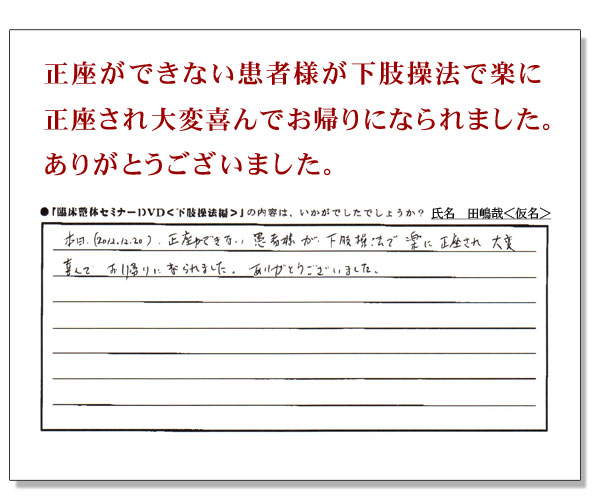 正座ができない患者様が下肢操法で楽に
正座され大変喜んでお帰りになられました。
ありがとうございました。
●『臨床整体セミナーDVD＜下肢操法編＞』の内容は、いかがでしたでしょうか？ 氏名 田嶋哉＜仮名＞
本日、(2012.12.20)、正座ができない患者様が、下肢操法で楽に正座され大変
喜んで お帰りになられました。ありがとうございました。